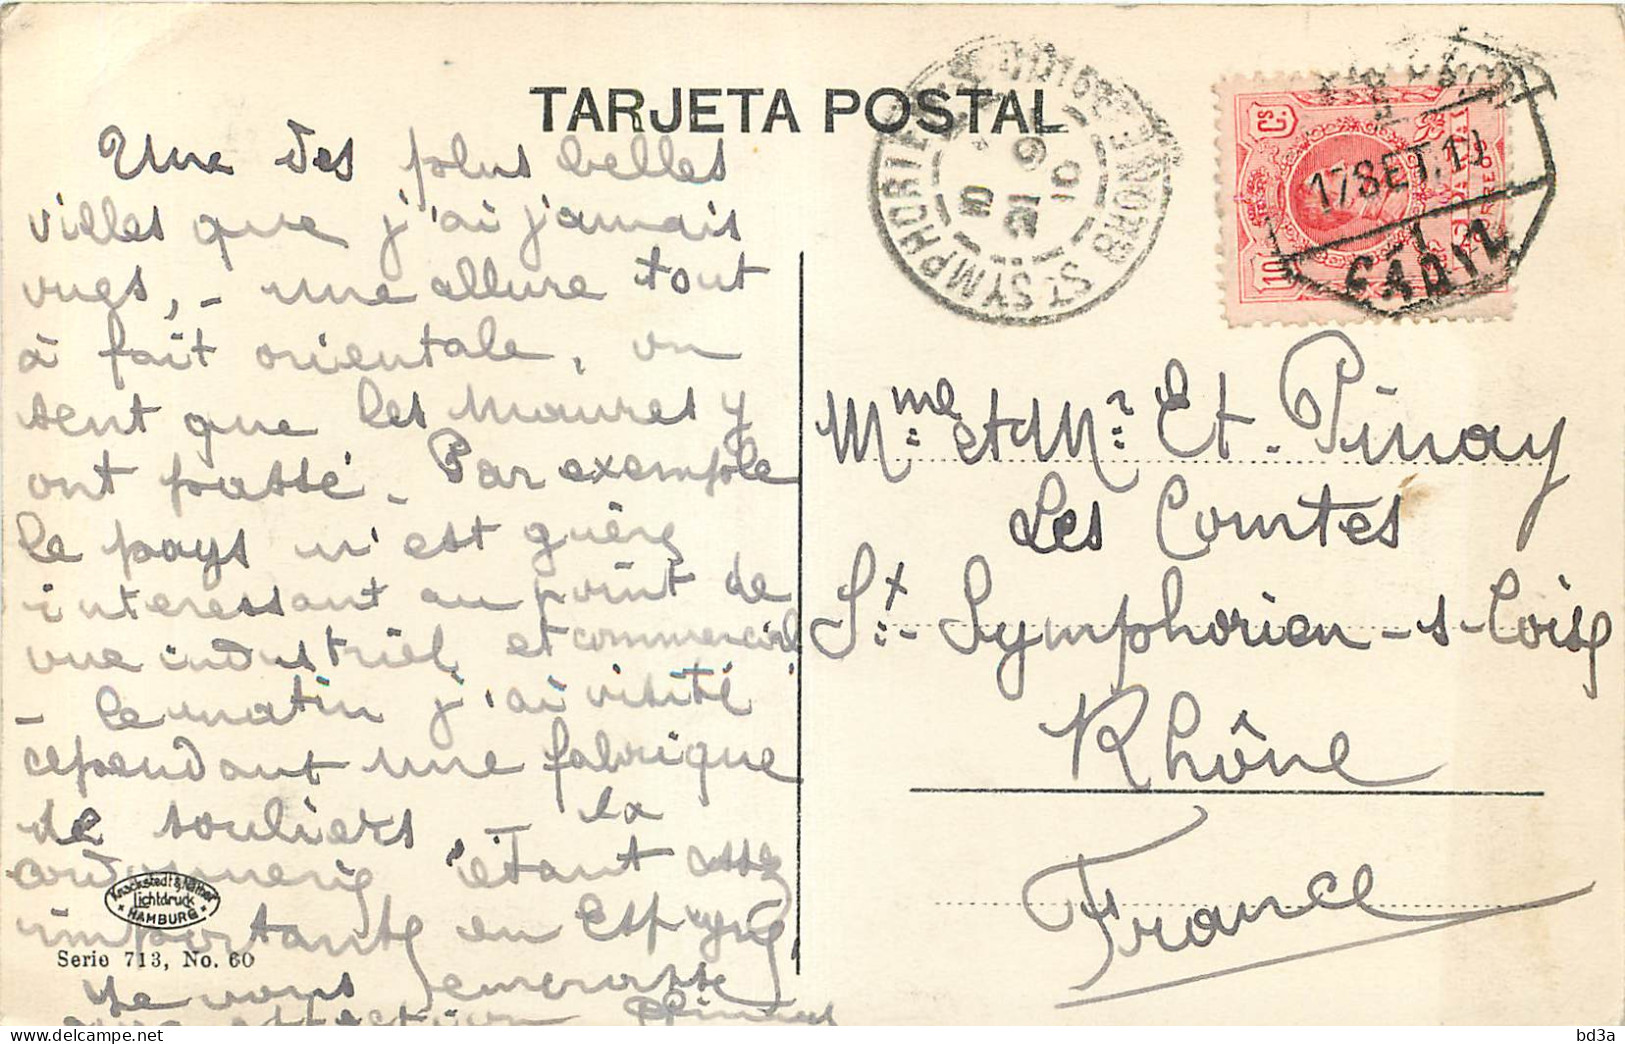 TARJETA POSTAL
Une des plus belles
villes que j'ai jamais
vues, - une allure tout
à fait orientale, on
sent que les Maures y
ont passé - Par exemple
le pays n'est guère
interessant au point de
vue industriel et commercial
- le matin j'ai visité
cependant une fabrique
de souliers, - la
cordonnerie étant assez
importante en Espagne,
Je vous embrasse
affection
Knackstedt & Näther
Lichtdruck
HAMBURG
Serie 713, No. 60
ST SYMPHORIEN
RHONE
10
21 9
10
10 Cs
CORREOS
17 SET. 10
CADIZ
Mme et Mr Et. Pinay
Les Comtes
St. Symphorien-s-Coise
Rhône
France
bd3a